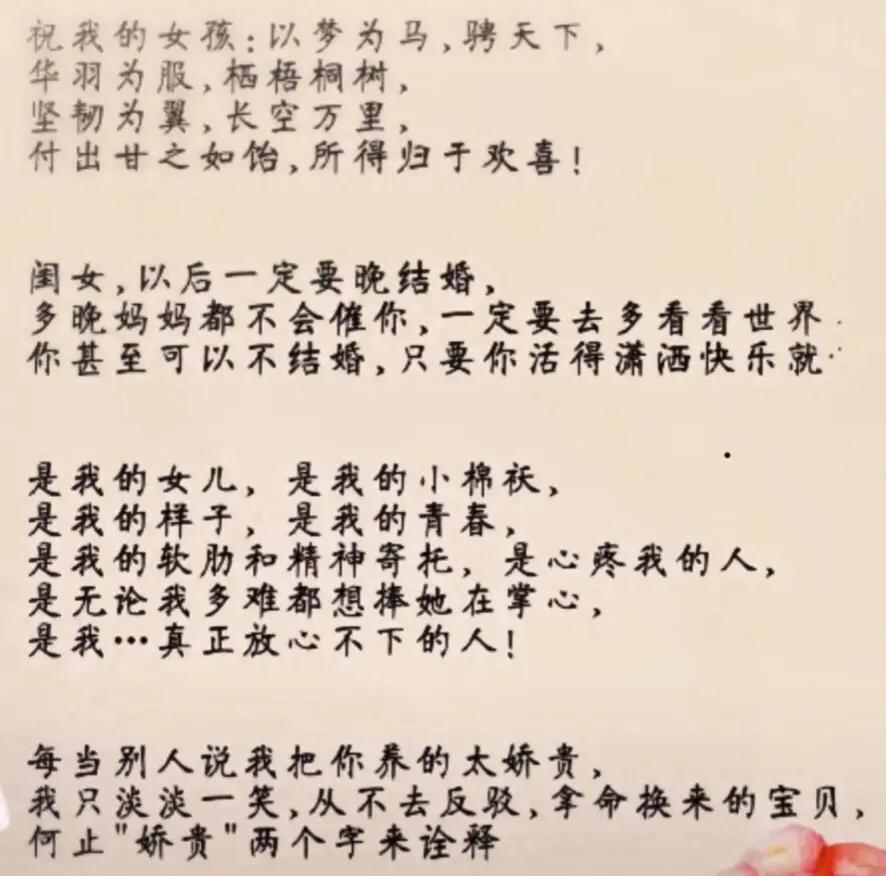 祝我的女孩:以梦为马,骋天下,
华羽为服,栖梧桐树,
坚韧为翼,长空万里,
付出甘之如饴,所得归于欢喜!
闺女,以后一定要晚结婚,
多晚妈妈都不会催你,一定要去多看看世界
你甚至可以不结婚,只要你活得潇洒快乐就
是我的女儿, 是我的小棉袄,
是我的样子, 是我的青春,
是我的软肋和精神寄托, 是心疼我的人,
是无论我多难都想捧她在掌心,
是我…真正放心不下的人!
每当别人说我把你养的太娇贵,
我只淡淡一笑,从不去反驳,拿命换来的宝贝,
何止"娇贵"两个字来诠释